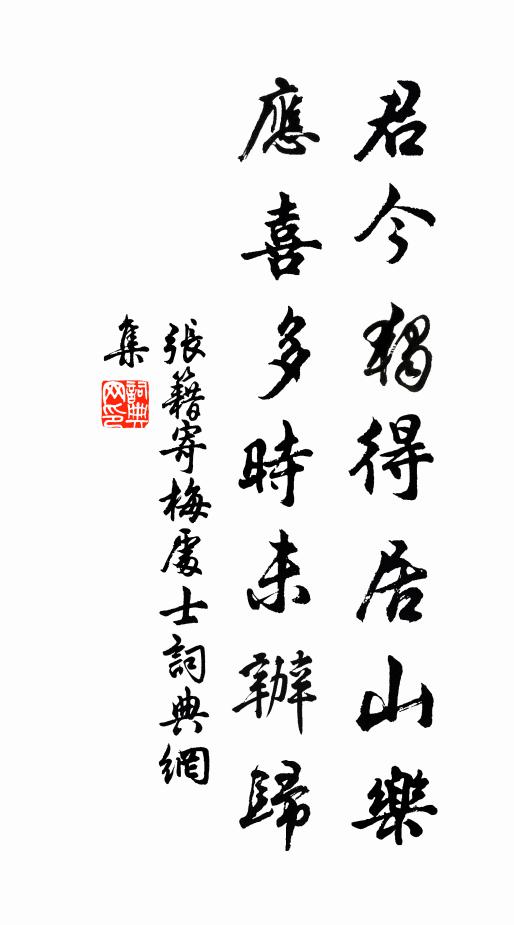 君今獨得居山樂
應喜多時未辦歸
張籍寄梅處士詞典網
集
詞典
网印